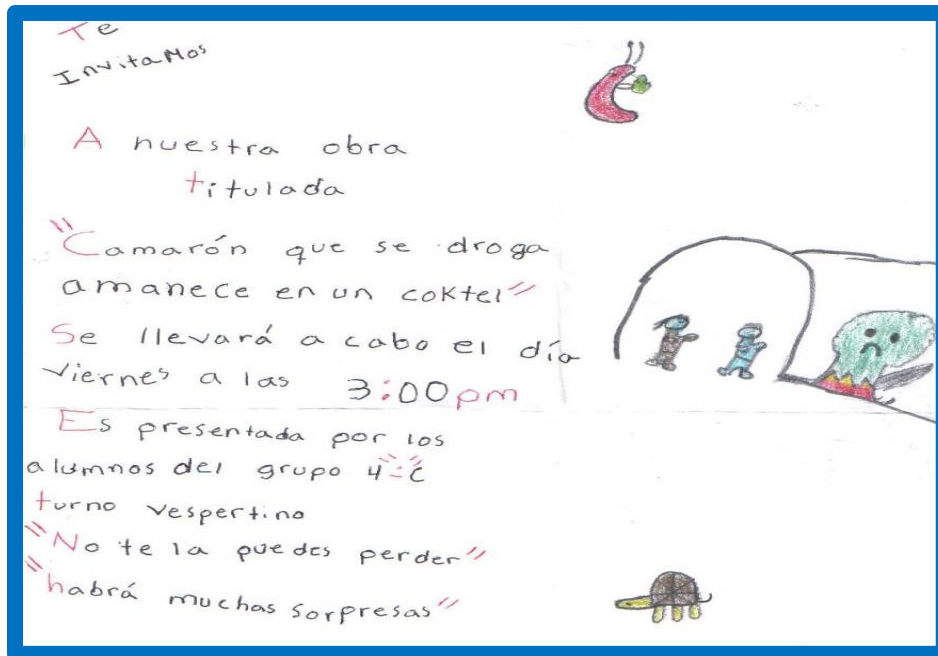 Te
InvitaMos
A nuestra obra
titulada
"Camarón que se droga
amanece en un coktel"
Se llevará a cabo el día
viernes a las 3:00 pm
Es presentada por los
alumnos del grupo 4-"C"
turno vespertino
"No te la puedes perder"
"habrá muchas sorpresas"